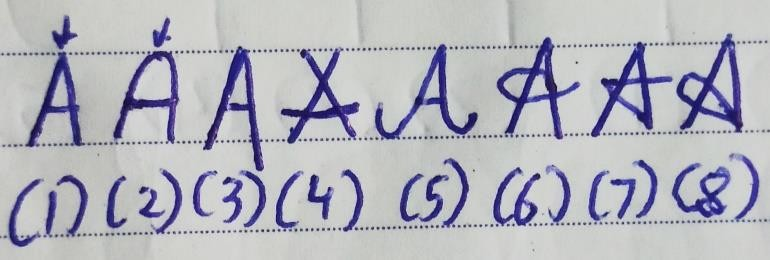 A A A A A A A A
(1) (2) (3) (4) (5) (6) (7) (8)